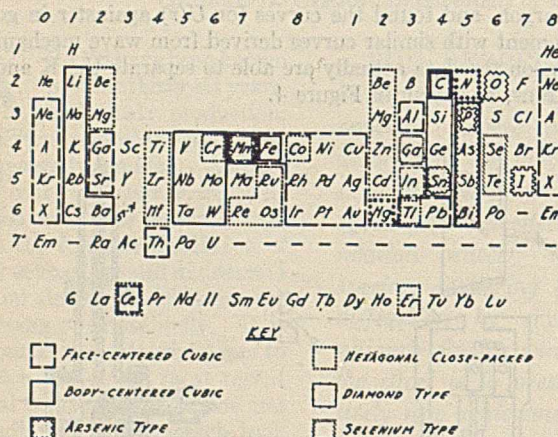 0 1 2 3 4 5 6 7 8 1 2 3 4 5 6 7 8
1 H He
2 He Li Be Be B C N O F Ne
3 Ne Na Mg Mg Al Si P S Cl A
4 A K Ga Sc Ti V Cr Mn Fe Co Ni Cu Zn Ga Ge As Se Br K
5 Kr Rb Sr Y Zr Nb Mo Ma Ru Rh Pd Ag Cd In Sn Sb Te I X
6 X Cs Ba Hf Ta W Re Os Ir Pt Au Hg Tl Pb Bi Po - Em
7 Em - Ra Ac Th Pa U - - - - - - - - - - -
6 La Ce Pr Nd Il Sm Eu Gd Tb Dy Ho Er Tu Yb Lu
KEY
FACE-CENTERED CUBIC HEXAGONAL CLOSE-PACKED
BODY-CENTERED CUBIC DIAMOND TYPE
ARSENIC TYPE SELENIUM TYPE